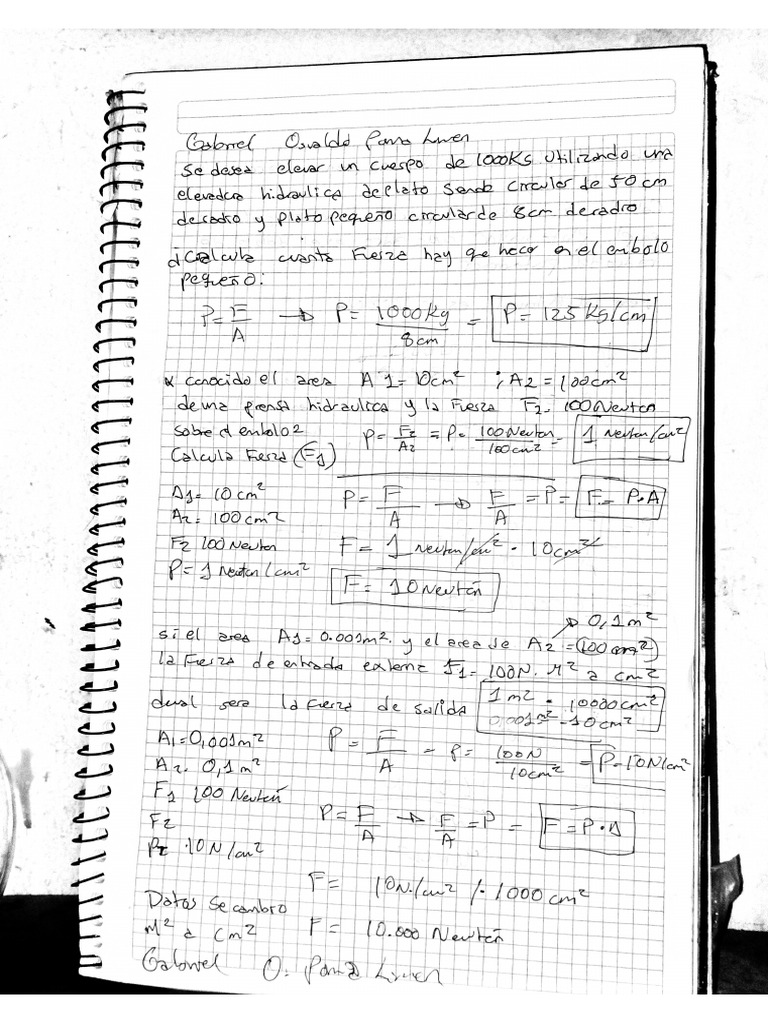 Gabriel Osvaldo Parra
Se desea elevar un cuerpo de 1000Kg utilizando una
elevadora hidraulica de plato grande circular de 50 cm
de radio y plato pequeño circular de 8cm de radio
Calcula cuanta Fuerza hay que hacer en el embolo
pequeño:
P = F/A → P = 1000Kg/8cm = P = 125 Kg/cm
conocido el area A1 = 10cm² ; A2 = 100cm²
de una prensa hidraulica y la Fuerza F2 = 100 Newton
sobre el embolo 2 P = F2/A2 = P = 100 Newton/100cm² = 1 Newton/cm²
Calcula Fuerza (F1)
A1 = 10cm² P = F/A → F/A = P = F = P·A
A2 = 100cm²
F2 100 Newton F = 1 Newton/cm² · 10cm²
P = 1 Newton/cm² F = 10 Newton
0,1m²
si el area A1 = 0.001m². y el area de A2 = (100cm²)
la Fuerza de entrada externa F1 = 100N. M² a cm²
cual sera la Fuerza de salida 1m² = 10000cm²
0,001m² - 10cm²
A1 = 0,001m² P = F/A = P = 100N/10cm² = P = 10N/cm²
A2. 0,1m²
F1 100 Newton P = F/A → F/A = P = F = P·A
F2
P2 · 10N/cm²
F = 10N/cm² · 1000cm²
Datos se cambro
M² a cm² F = 10.000 Newton
Gabriel O. Parra